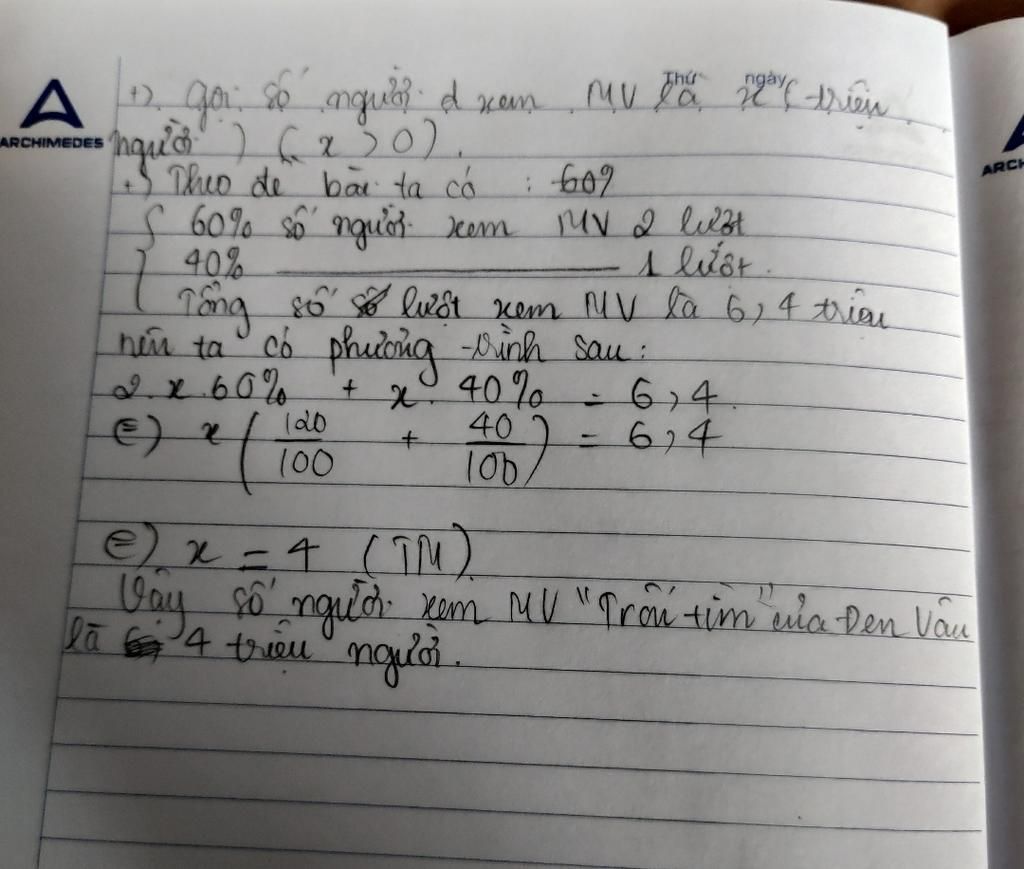 Thứ ngày
ARCHIMEDES
+) Gọi số người đ xem MV là x (triệu
người) (x > 0).
+) Theo đề bài ta có : 60%
60% số người xem MV 2 lượt
40% ———————— 1 lượt.
Tổng số lượt xem MV là 6,4 triệu
nên ta có phương trình sau:
2.x.60% + x.40% = 6,4.
⇔) x(120/100 + 40/100) = 6,4
⇔) x = 4 (TM)
Vậy số người xem MV "Trốn tìm" của Đen Vâu
là 4 triệu người.
ARCH